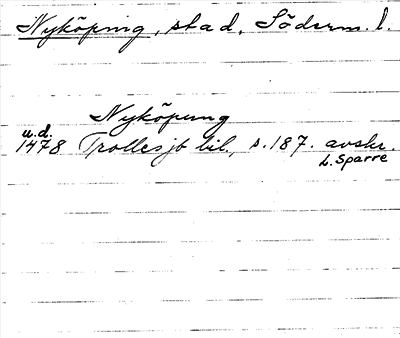 Nyköping, stad, Söderm. l.
Nyköping
u.d.
1478 Trollesjö bil., s. 187. avskr.
L. Sparre